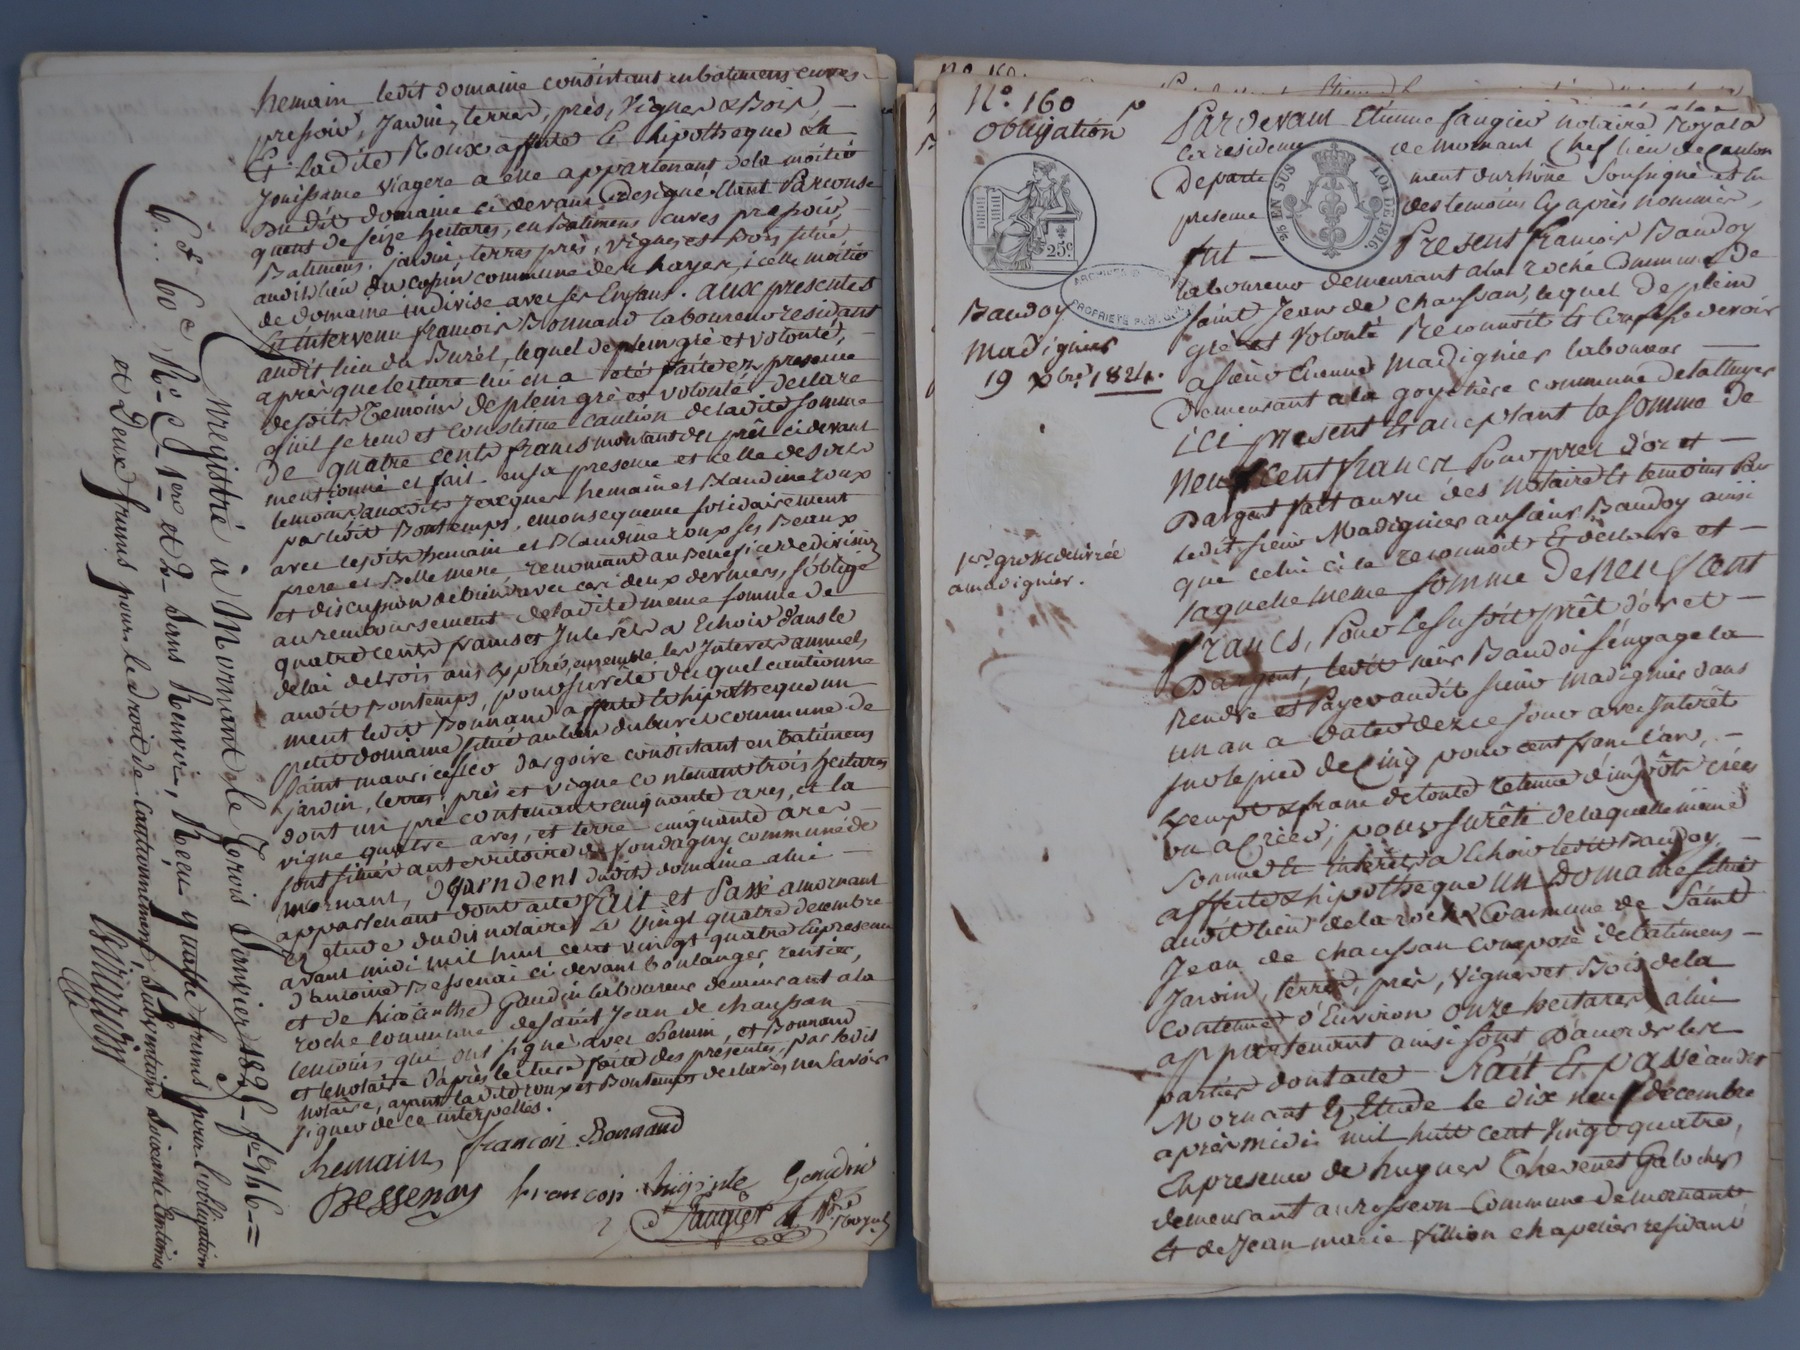 hemain ledit domaine consistant en batimens cuves
pressoir, Jardin, terres, près, Vignes & Bois, —
Et ladite Roux affecte et hipotheque la
Jouissance Viagere a elle appartenant de la moitié
Du dit domaine ci devant designé étant Parconse
quent de seize hectares, en Batimens cuves pressoir,
Batimens, jardin, terres près, Vignes et Bois situé
audit lieu du copin commune de hayer, icelle moitié
de domaine indivise avec ses Enfans. aux presentes
Est intervenu francois Bonnand laboureur residant
audit lieu du Burel, lequel de plein gré et volonté,
après que lecture lui en a été faite en presence
desdits temoins de plein gré et volonté declare
qu'il se rend et constitue caution de ladite somme
De quatre cents francs montant du prêt ci devant
mentionné et fait en sa presence et celle desdits
temoins auxdits Jacques hemain et Blandine roux
par ledit Bontemps, en consequence solidairement
avec lesdits hemain et Blandine roux ses Beaux
frere et Belle mere renoncant au Benefice de division
et discussion de biens avec ces deux derniers, s'oblige
au remboursement de ladite meme somme de
quatre cents francs et Interets a Echoir dans le
delai de trois ans expirés, ensemble les Interets annuels,
audit Bontemps, pour sureté du quel cautionne
ment ledit Bonnand affecte et hipotheque un
petit domaine situé au lieu du burel commune de
Saint maurice sur dargoire consistant en batimens
jardin, terres près et vigne contenant trois hectares
dont un pré contenant cinquante ares, et la
vigne quatre ares, et terre cinquante ares —
sont situés au territoire de fondagny commune de
mornant, dépendent dudit domaine a lui —
appartenant dont acte fait et Passé a mornant
en etude dudit notaire Le Vingt quatre decembre
avant midi mil huit cent vingt quatre En presence
d'antoine Bessenai ci devant boulanger rentier,
et de hiacinthe Gaudin laboureur demeurant a la
roche commune de saint Jean de chaussan —
temoins qui ont signé avec hemain, et Bonnand
et le notaire d'après lecture faite des presentes par ledit
notaire, ayant ladite roux et Bontemps declarés ne savoir
signer de ce interpellés.
hemain francois Bonnand
Bessenay francois higinte Gaudin
Saugier
Enregistré à Mornant le Trois Janvier 1825
6 f 60 c Ro C 1ere et 2 Sans Renvoi, Reçu quatre francs pour l'obligation
et Deux francs pour le droit de cautionnement, subvention soixante Centimes
No. 160
obligation
25 c.
25 EN SUS
LOI DE 1816.
ARCHIVES
PROPRIETE PUBLIQUE
Baudoy
Madignier
19 Xbre 1824.
1ere grosse délivrée
a madignier.
Pardevant Etienne Saugier notaire Royal a
la residence de mornant Chef lieu de Canton
Departe ment du rhône Soussigné et en
presence des temoins Cy après nommés,
fut — Present francois Baudoy
laboureur demeurant a la roche Commune De
saint Jean de chaussan, lequel De plein
gré et Volonté Reconnoit et Confesse devoir
a sieur Etienne Madignier laboureur —
Demeurant a la goyetière commune de talluyer
ici present et acceptant la somme de
neuf cent francs Pour pret d'or et —
D'argent fait au vu des notaire et temoins Par
ledit sieur Madignier au sieur Baudoy ainsi
que celui ci le reconnoit et declare et —
laquelle meme somme De neuf Cent
francs, Pour le susdit prêt d'or et —
D'argent, ledit sieur Baudoi s'engage la
Rendre et Payer audit sieur madignier dans
un an a dater de ce jour avec Interêt
sur le pied de Cinq pour cent franc l'an, —
Exempt & franc de toute retenue d'impôts crées
ou a Créer; pour surêté de laquelle même
somme et Interêts a Echoir ledit Baudoy, —
affecte & hipotheque un domaine situé
audit lieu de la roche Commune de Saint
Jean de chaussan composé de batimens —
Jardin, terres, près, Vignes et Bois de la
Contenue d'Environ onze hectares a lui
appartenant ainsi sont D'accord les
parties dont acte Fait Et passé audit
Mornant Et Etude le dix neuf décembre
après midi mil huit cent vingt quatre,
En presence de hugues Thevenet Galocher
demeurant au rosseon Commune De mornant
Et de Jean marie fillion chapelier residant